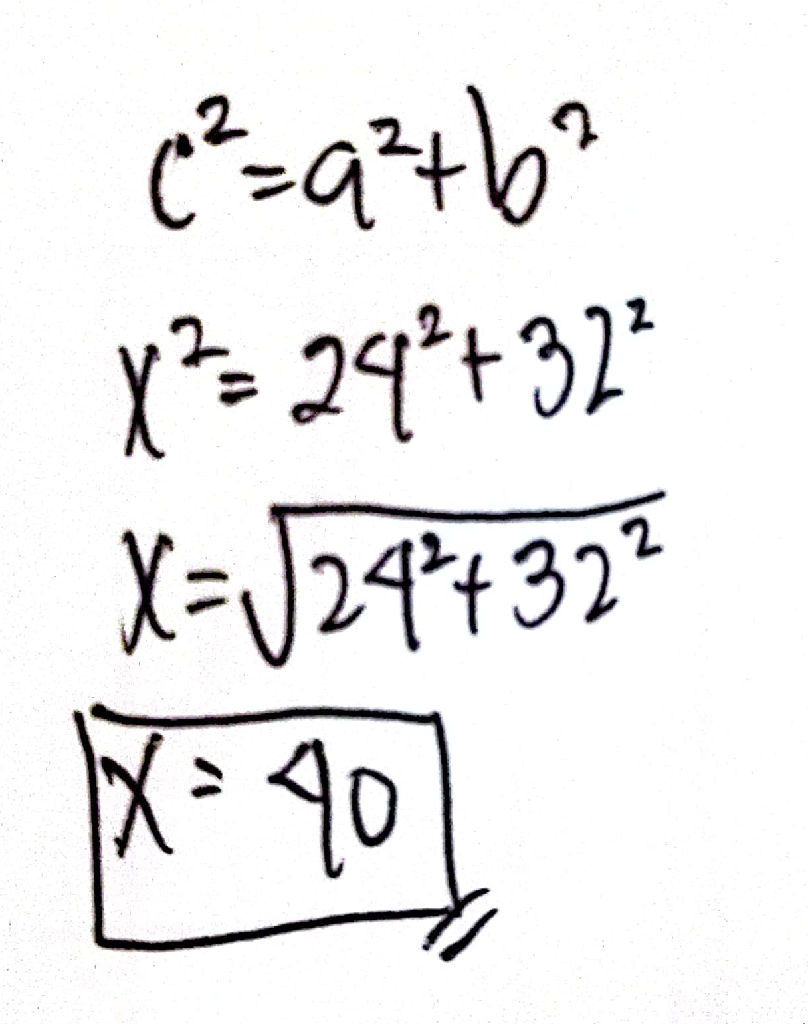 c²=a²+b²
x²=24²+32²
x=√24²+32²
x=40